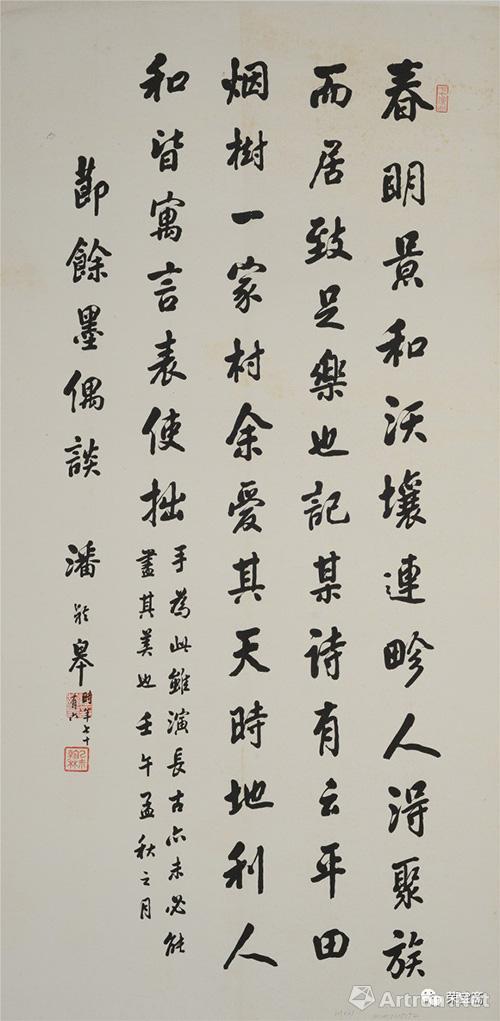 春明景和沃壤連畛人得聚族
而居致足樂也記某詩有云平田
烟樹一家村余愛其天時地利人
和皆寓言表使拙
手為此雖演長古亦未必能
盡其美也壬午孟秋之月
節餘墨偶談 潘龄皋
時年七十
有六
乙未
翰林
荣宝斋
Artron.net